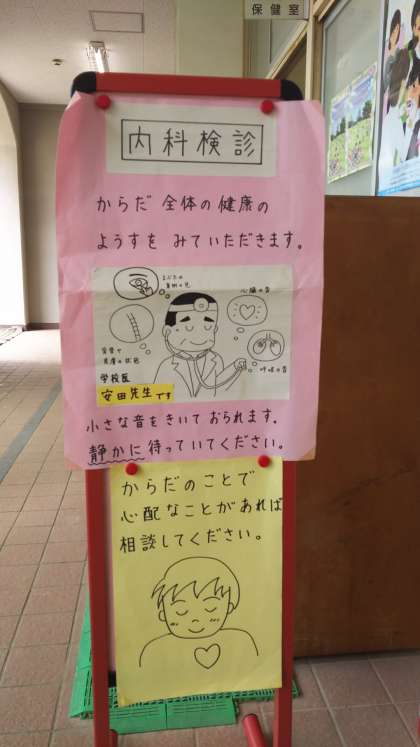 保健室
内科検診
からだ 全体の健康の
ようすを みていただきます。
まぶたの
裏側の色
心臓の音
背骨や
皮膚の状態
呼吸の音
学校医
安田先生です
小さな音をきいておられます。
静かに待っていてください。
からだのことで
心配なことがあれば
相談してください。